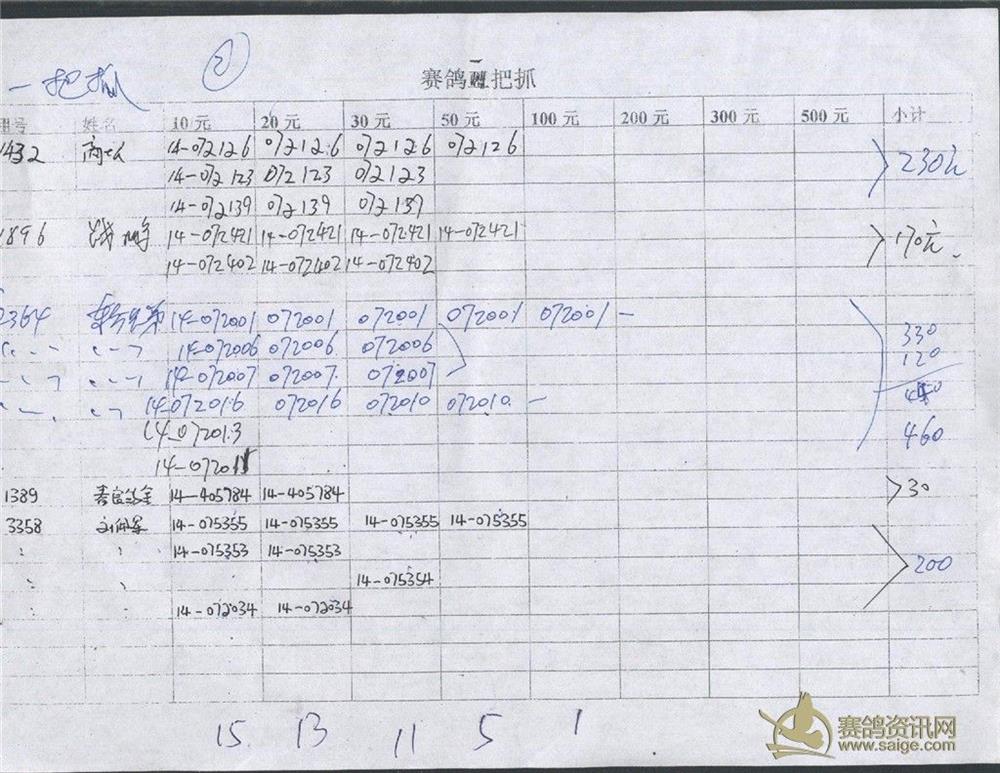 一把抓 ②
赛鸽一把抓
组号 姓名 10 元 20 元 30 元 50 元 100 元 200 元 300 元 500 元 小计
1432 14-072126 072126 072126 072126 230元
14-072123 072123 072123
14-072139 072139 072139
1896 14-072421 14-072421 14-072421 14-072421 170元.
14-072402 14-072402 14-072402
2364 14-072001 072001 072001 072001 072001 - 330
14-072006 072006 072006 120
14-072007 072007 072007
14-072016 072016 072010 072010 - 460
14-072013
14-072011
1389 14-405784 14-405784 30
3358 14-075355 14-075355 14-075355 14-075355
14-075353 14-075353
14-075354 200
14-072034 14-072034
15 13 11 5 1
赛鸽资讯网
www.saige.com